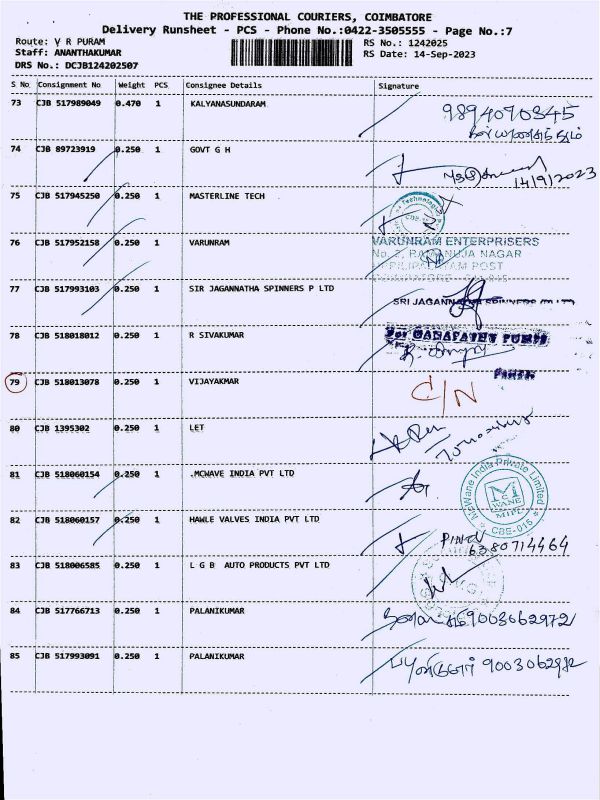 THE PROFESSIONAL COURIERS, COIMBATORE
Delivery Runsheet - PCS - Phone No.:0422-3505555 - Page No.:7
Route: V R PURAM RS No.: 1242025
Staff: ANANTHAKUMAR RS Date: 14-Sep-2023
DRS No.: DCJB124202507
S No Consignment No Weight PCS Consignee Details Signature
73 CJB 517989049 0.470 1 KALYANASUNDARAM 9894070345
74 CJB 89723919 0.250 1 GOVT G H 14/9/2023
75 CJB 517945250 0.250 1 MASTERLINE TECH
76 CJB 517952158 0.250 1 VARUNRAM VARUNRAM ENTERPRISERS
77 CJB 517993103 0.250 1 SIR JAGANNATHA SPINNERS P LTD SRI JAGANNATHA SPINNERS
78 CJB 518018012 0.250 1 R SIVAKUMAR For GANAPATHY PUMPS
79 CJB 518013078 0.250 1 VIJAYAKMAR C/N
80 CJB 1395302 0.250 1 LET
81 CJB 518060154 0.250 1 .MCWAVE INDIA PVT LTD McWane India Private Limited
MC WANE MIPL
CBE-015
82 CJB 518060157 0.250 1 HAWLE VALVES INDIA PVT LTD 6380714464
83 CJB 518006585 0.250 1 L G B AUTO PRODUCTS PVT LTD
84 CJB 517766713 0.250 1 PALANIKUMAR 9003062972
85 CJB 517993091 0.250 1 PALANIKUMAR 9003062972